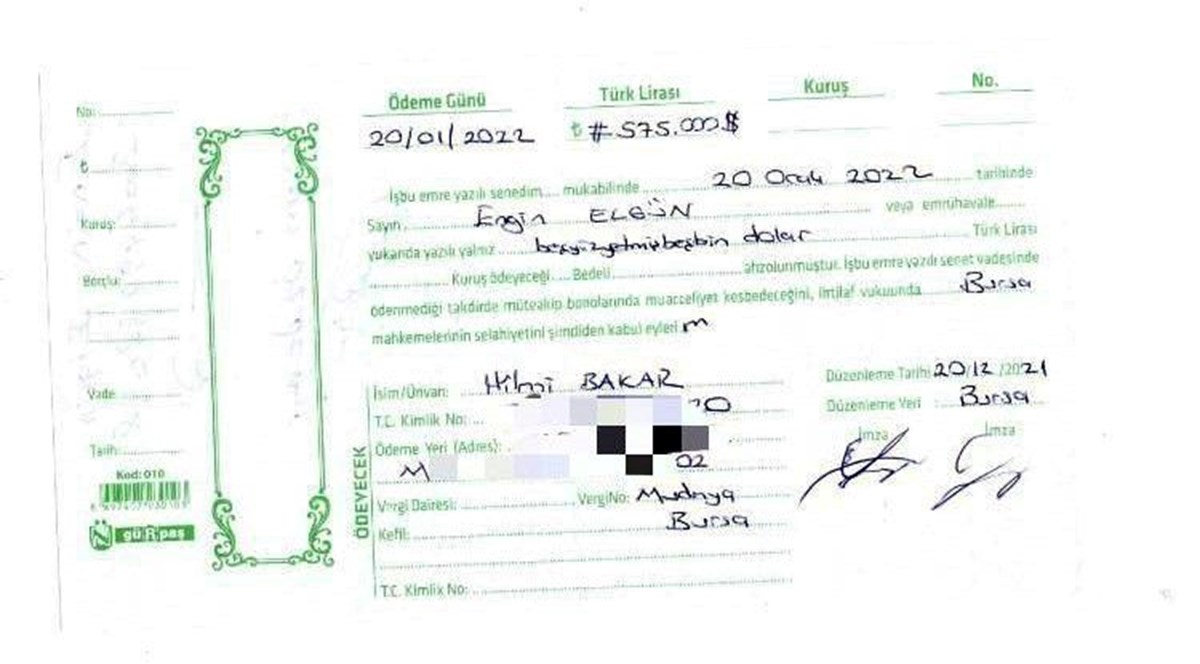 No:
₺
Kuruş:
Borçlu:
Vade:
Tarih:
Kod: 010
gürpaş
Ödeme Günü Türk Lirası Kuruş No.
20/01/2022 ₺ # 575.000$
İşbu emre yazılı senedim mukabilinde 20 Ocak 2022 tarihinde
Sayın Engin ELGÜN veya emrühavale
yukarıda yazılı yalnız beşyüzyetmişbeşbin dolar Türk Lirası
Kuruş ödeyeceği Bedeli ahzolunmuştur. İşbu emre yazılı senet vadesinde
ödenmediği takdirde müteakip bonolarında muacceliyet kesbedeceğini, ihtilaf vukuunda Bursa
mahkemelerinin selahiyetini şimdiden kabul eylerim
ÖDEYECEK
İsim/Ünvan: Hilmi BAKAR
T.C. Kimlik No: 70
Ödeme Yeri (Adres):
M 02
Vergi Dairesi: Vergi No: Mudnya
Bursa
Kefil:
T.C. Kimlik No:
Düzenleme Tarihi 20/12/2021
Düzenleme Yeri : Bursa
İmza İmza